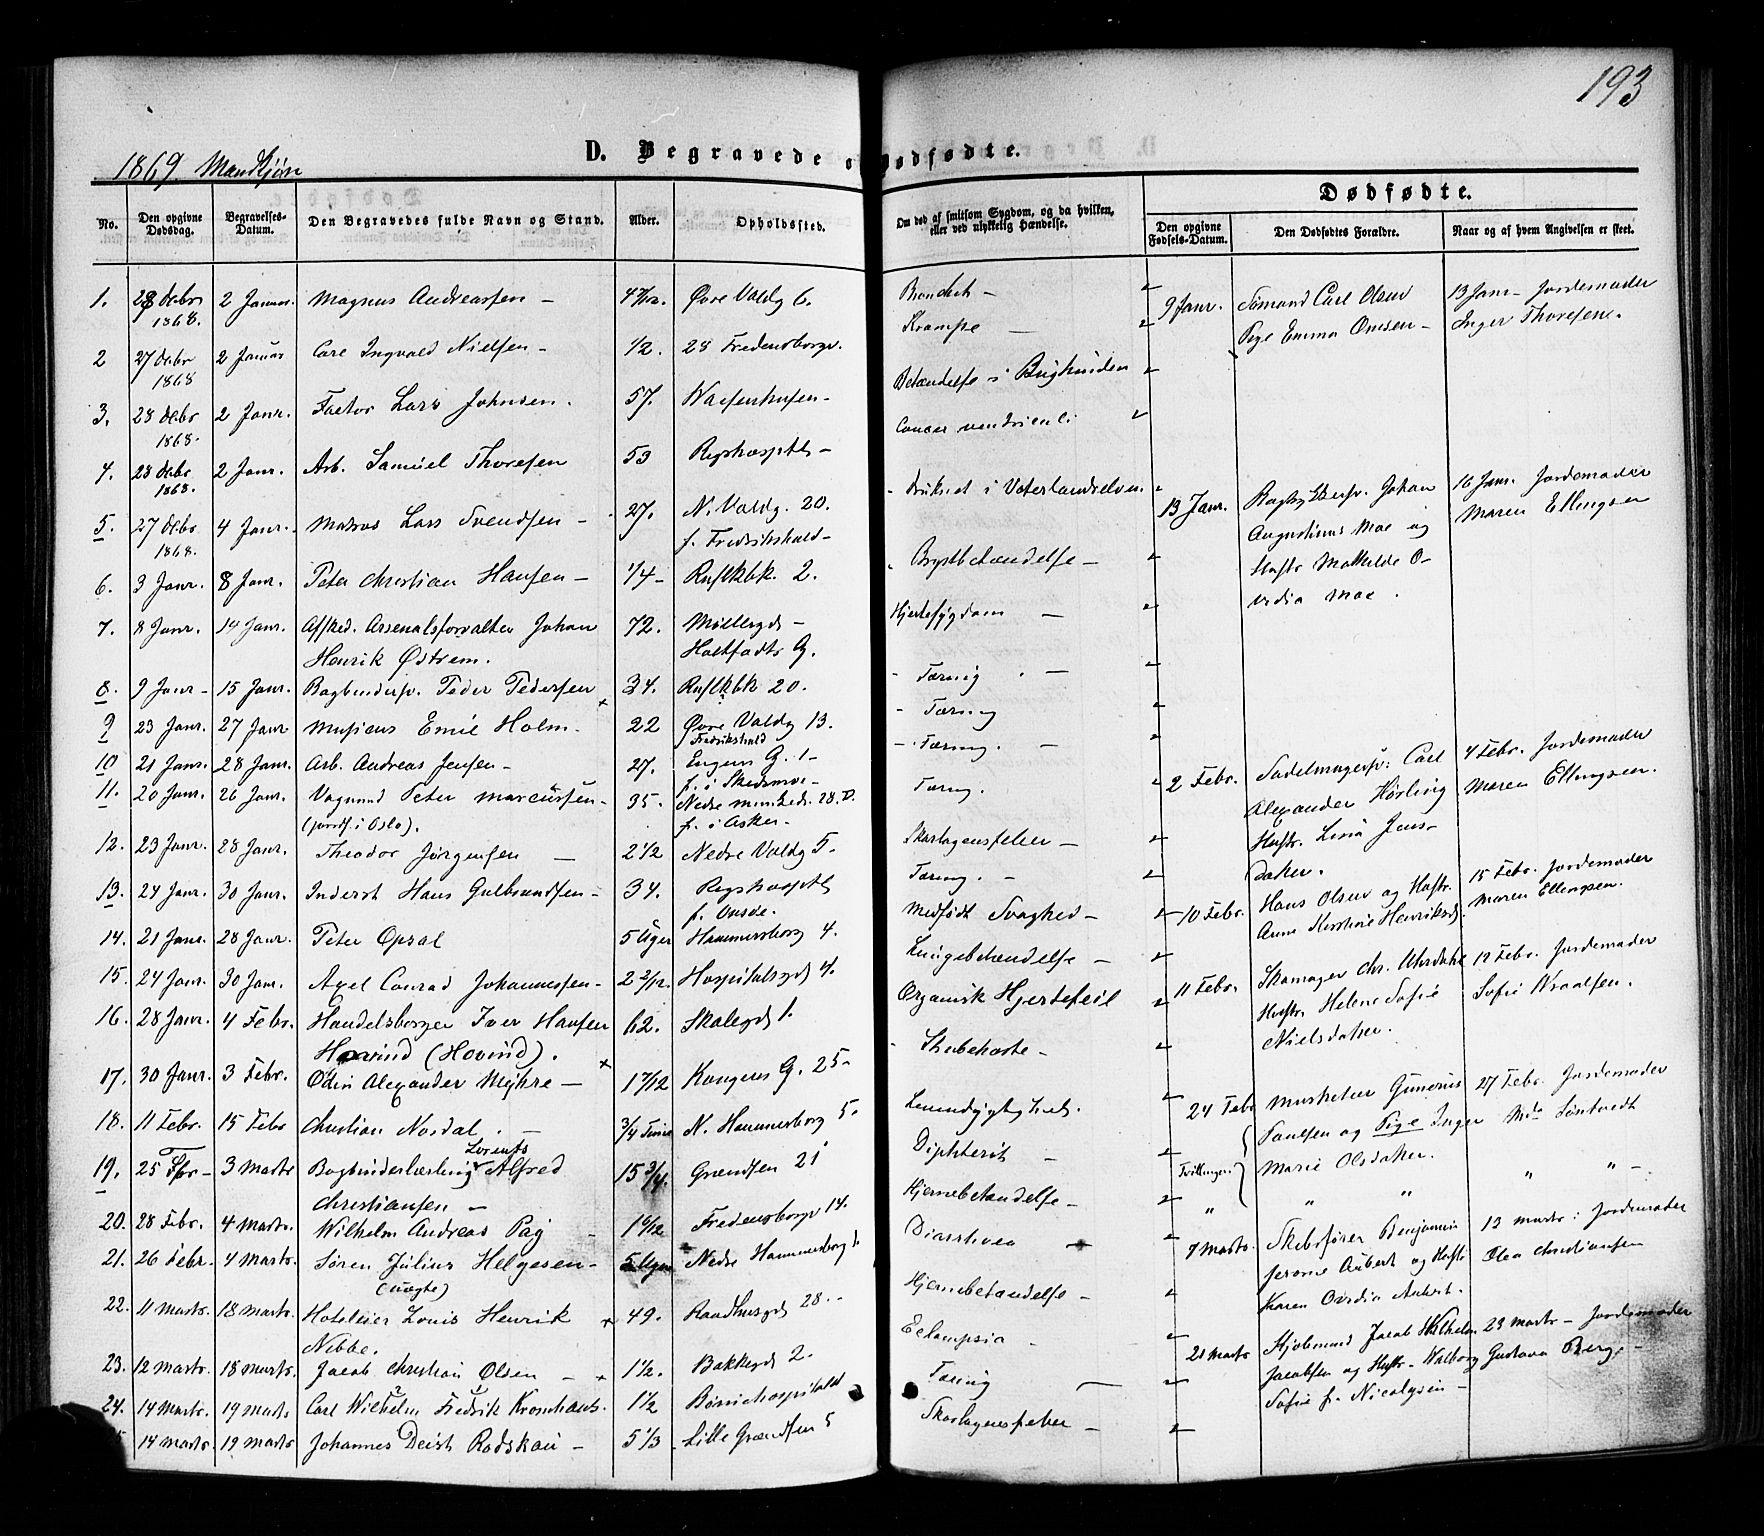 193
D. Begravede o
Dødfødte.
1869. Mandkjøn
No.
Den opgivne Dødsdag.
Begravelses-Datum.
Den Begravedes fulde Navn og Stand.
Alder.
Opholdssted.
Om død af smitsom Sygdom, og da hvilken, eller ved ulykkelig Hændelse.
Dødfødte.
Den opgivne Fødsels-Datum.
Den Dødfødtes Forældre.
Naar og af hvem Angivelsen er skeet.
1. 28 Debr 1868. 2 Januar Magnus Andreassen - 4 Øvre Voldg 6. Bronchit -
2 27 Debr 1868 2 Januar Carl Ingvald Nielsen - 1/2. 28 Fredensborgv. Krampe -
3. 28 Debr 1868. 2 Janr. Factor Lars Johnsen. 57. Waisenhusen - Betændelse i Bughinden
4. 28 Debr 1868. 2 Janr. Arb. Samuel Thoresen 53 Rigshospitl - Cancer ventriculi
5. 27 Debr 1868. 4 Janr. Matros Lars Svendsen - 27. N. Voldg. 20. f. Fredrikshald - Druknet i Vaterlandselven
6. 3 Janr. 8 Janr. Peter Christian Hansen - 1/4 - Rusløkbk. 2. Brystbetændelse -
7. 8 Janr. 14 Janr. Afsked. Arsenalsforvalter Johan Henrik Østrem. 72. Møllergd - G. Hjertesygdom -
8. 9 Janr - 15 Janr. Bogbindersv. Peder Pedersen 34. Rusløkbk 20. Tæring -
9 23 Janr. 27 Janr Musicus Emil Holm. 22 Øvre Voldg 13. Fredrikshald Tæring
10 21 Janr. 28 Janr. Arb. Andreas Jensen - 27. Engens G. 1 - f. i Skedsmoe - Tæring. -
11. 20 Janr. 26 Janr. Vognmd Peter Marcussen - (jordf. i Oslo). 35. Nedre 28. D. f. i Asker - Tæring.
12. 23 Janr. 28 Janr. Theodor Jørgensen - 2 1/2 Nedre Voldg 5 - Skarlagensfeber -
13. 24 Janr. 30 Janr. Inderst Hans Gulbrandsen - 34. Rigshospitl f. Onsøe. Tæring. -
14. 21 Janr. 28 Janr. Peter Opsal 5 Uger Hammersborg 4. Medfødt Svaghed -
15. 24 Janr. 30 Janr. Axel Conrad Johannessen - 2 2/12. Hospitalsgd 4. Lungebetændelse -
16. 28 Janr. 4 Febr. Handelsborger Iver Hansen Haavind (Hovind). 62. Skolegd 1. Organisk Hjertefeil
17. 30 Janr. 3 Febr. Odin Alexander Myhre - 1 7/12 Kongens G. 25 - Strubehoste -
18. 11 Febr. 15 Febr Christian Nordal. - 3/4 Time N. Hammersborg 5.
19. 25 Fbr - 3 Marts Bogbinderlærling Lorents Alfred Christiansen - 15 3/4. Grændsen 21 Diphterit -
20. 28 Febr. 4 Marts. Wilhelm Andreas Pay 1 Fredensborgv 14. Hjernebetændelse -
21. 26 Febr. 4 Marts. Søren Julius Helgesen - (uægte) 5 Uger Nedre Hammersborg Diarrhoea
22. 11 Marts. 18 Marts. Hoteleier Louis Henrik Nibbe. 49. Raadhusgd 28. - Hjernebetændelse -
23. 12 Marts. 18 Marts. Jacob Christian Olsen - 1 1/2. Bakkegd 2. Eclampsia -
24. 14 Marts. 19 Marts Carl Wilhelm Fredrik 1 1/2 Børnehospitalet Tæring
14 Marts. 19 Marts Johannes Deist Rodskau - 5 1/3 Lille Grændsen 5 Skarlagensfeber -
9 Janr. Sømand Carl Olsen Pige Emma Omsen - 13 Janr - Jordemoder Inger Thoresen.
13 Janr. Johan Augustinus Moe og Hustr Mathilde Ovidia Moe. 16 Janr. Jordemoder Maren Ellingsen
2 Febr. Sadelmagersv. Carl Alexander Hørling Hustr. Lina Jensdatter. 4 Febr. Jordemoder Maren Ellingsen.
10 Febr. Hans Olsen og Hustr. Anne Kirstine Henriksd. 15 Febr. Jordemoder Maren Ellingsen.
11 Febr. Skomager Chr. Hustr. Helene Sofie Nielsdatter. 12 Febr. Jordemoder Sofie
24 Febr Tvillinger Musketer Gunerius Paulsen og Pige Inger Marie Olsdatter. 27 Febr. Jordemoder
" " " " " -
7 Marts. Benjamin Jerome Aubert og Hustr Karen Ovidia Aubert. 13 Marts: Jordemoder Olea Christiansen
21 Marts Jacob Wilhelm Jacobsen og Hustr. Walborg Sofie f. Nicolaysen - 23 Marts - Jordemoder Gustava Berge -